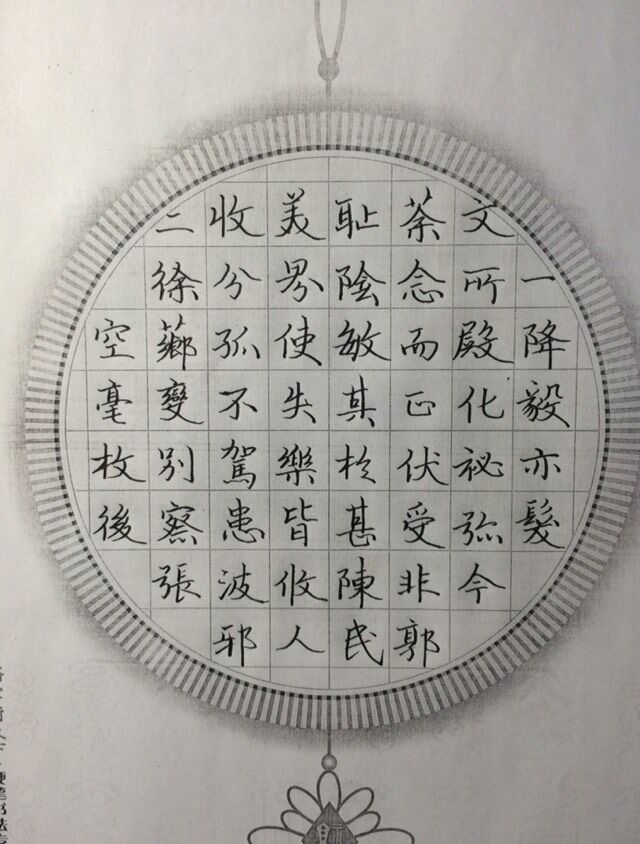 一降毅亦髮
文所殿化祕弥今
荼念而正伏受非郭
耻陰敏其於甚陳民
美界使失樂皆攸人
收分孤不駕患波邪
二徐薌變別察張
空毫枚後